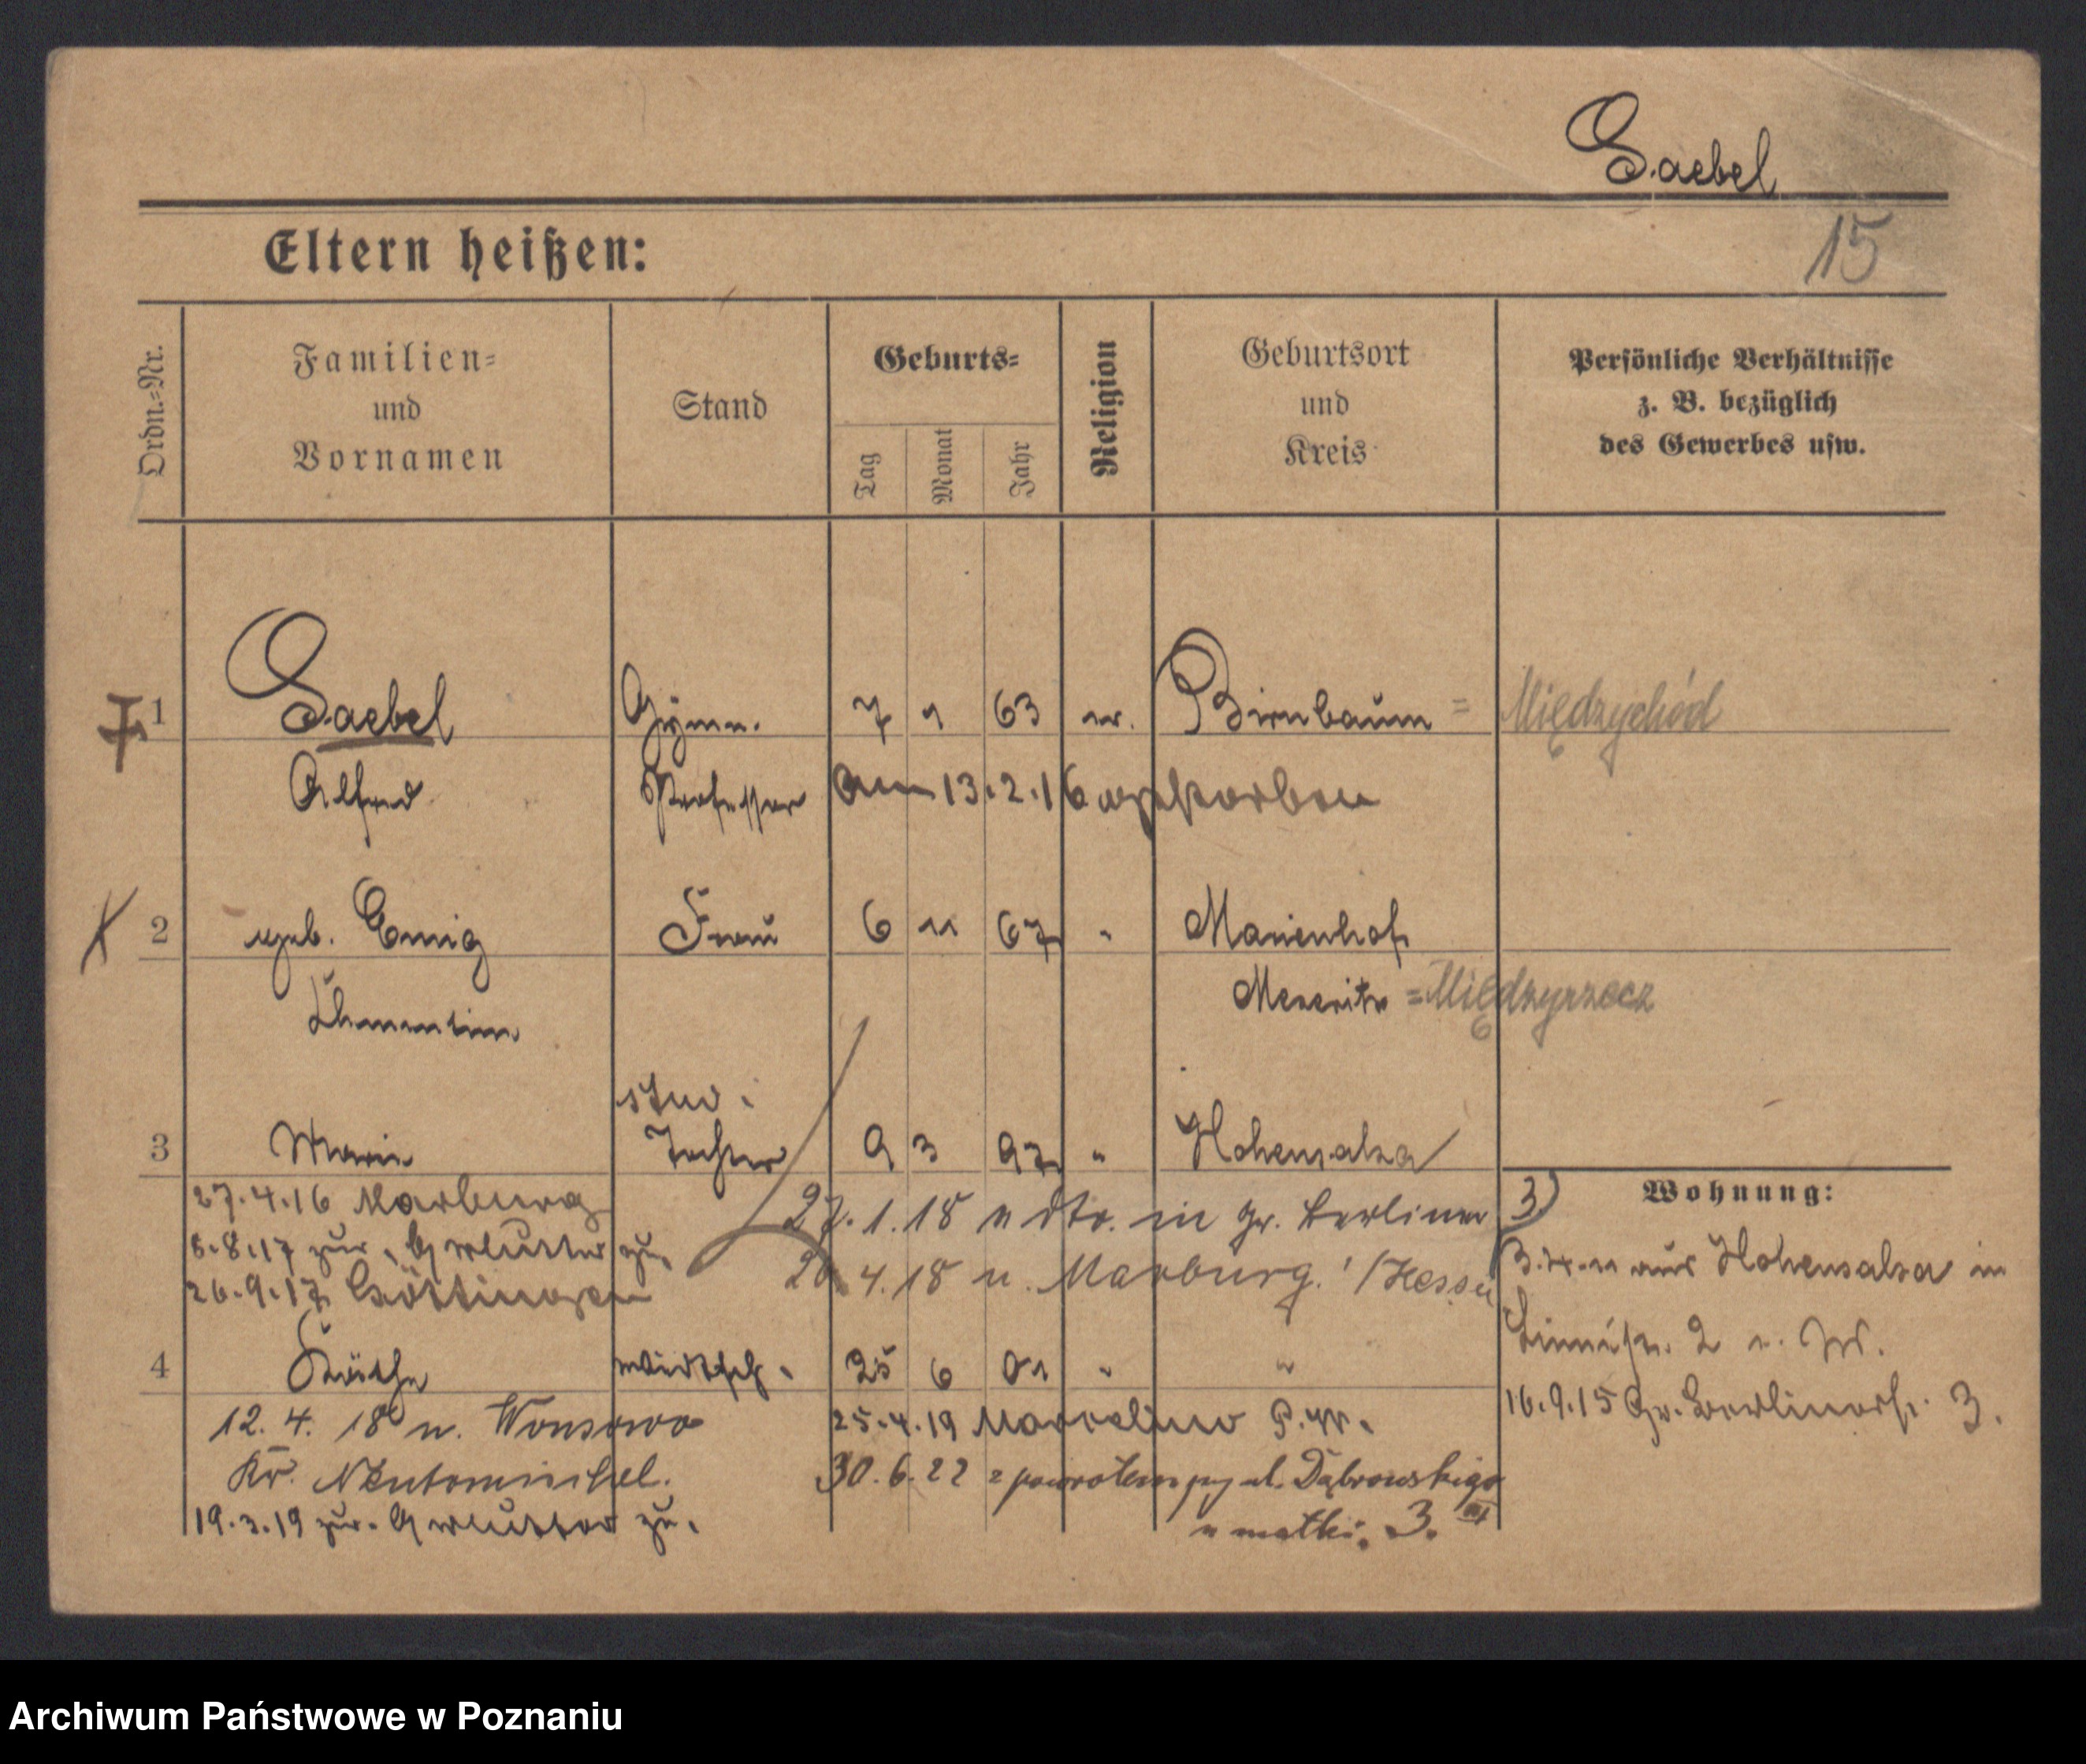 Gaebel
15
Eltern heißen:
Ordn.-Nr.
Familien-
und
Vornamen
Stand
Geburts-
Tag
Monat
Jahr
Religion
Geburtsort
und
Kreis
Persönliche Verhältnisse
z. B. bezüglich
des Gewerbes usw.
1 Gaebel Gymn. 7 1 63 ev. Birnbaum = Międzychód
Alfred Professor am 13.2.16 verstorben
2 geb. Emig Frau 6 11 67 " Marienhof
Klementine Meseritz = Międzyrzecz
stud.
3 Marie Tochter 9 3 97 " Hohensalza
27.4.16 Marburg
8.8.17 zur. Gr. zu.
26.9.17 Göttingen
27.1.18 n dto. in Gr. Berliner 3
20 4.18 n. Marburg. /Hessen
Wohnung:
aus Hohensalza in
2
16.9.15 Gr. Berlinerstr. 3.
4 Käthe wirtsch. 25 6 01 " "
12.4.18 n. Wonsowo
Kr. Neutomischel.
19.3.19 zur. zu.
25.4.19 P.W.
30.6.22 z powrotem przy ul. Dąbrowskiego
u matki. 3. III
Archiwum Państwowe w Poznaniu